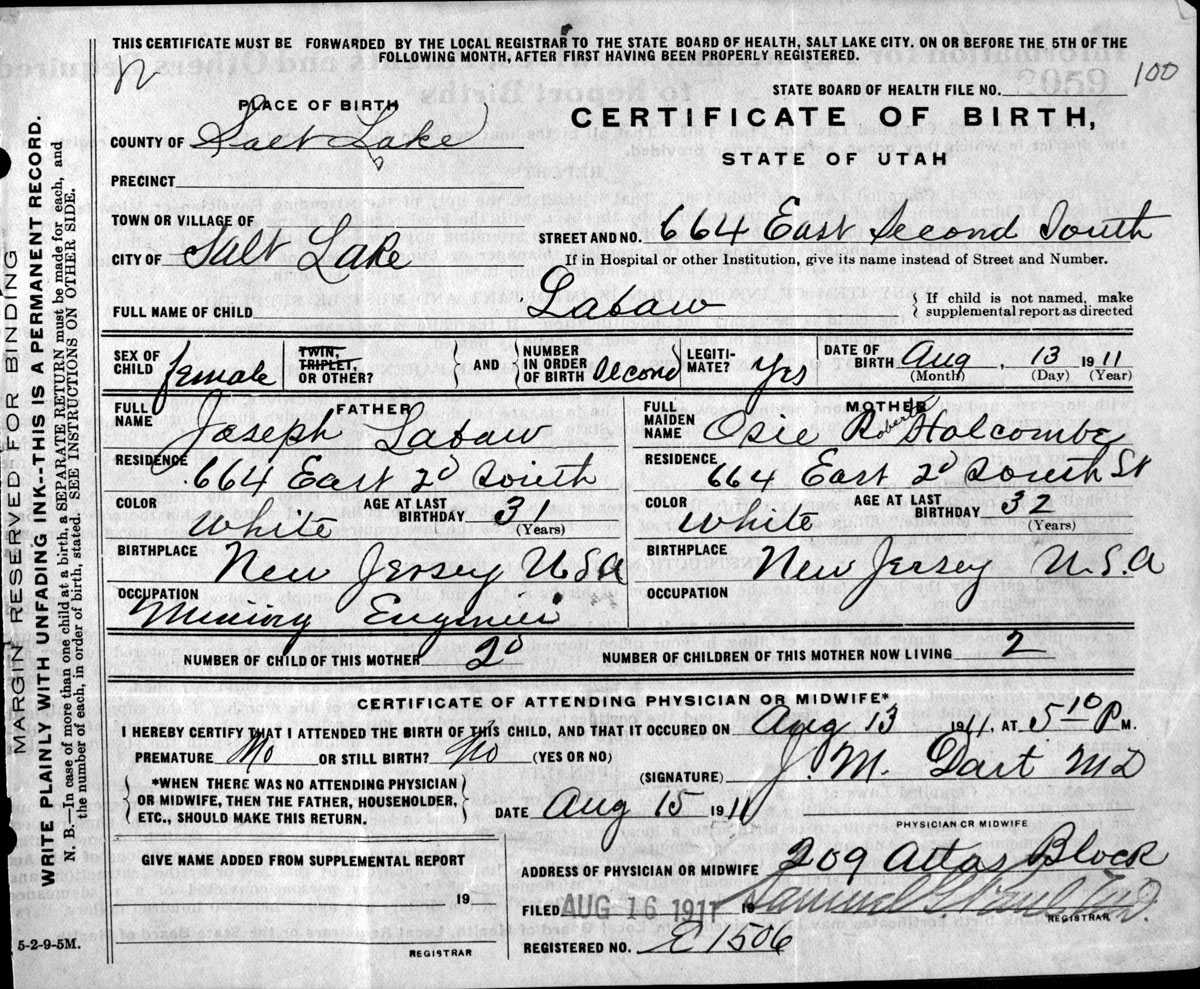 THIS CERTIFICATE MUST BE FORWARDED BY THE LOCAL REGISTRAR TO THE STATE BOARD OF HEALTH, SALT LAKE CITY. ON OR BEFORE THE 5TH OF THE
FOLLOWING MONTH, AFTER FIRST HAVING BEEN PROPERLY REGISTERED.
STATE BOARD OF HEALTH FILE NO. 100
PLACE OF BIRTH
CERTIFICATE OF BIRTH,
STATE OF UTAH
COUNTY OF Salt Lake
PRECINCT
TOWN OR VILLAGE OF
STREET AND NO. 664 East Second South
CITY OF Salt Lake
If in Hospital or other Institution, give its name instead of Street and Number.
FULL NAME OF CHILD Labaw
If child is not named, make
supplemental report as directed
SEX OF CHILD female
TWIN, TRIPLET, OR OTHER?
AND
NUMBER IN ORDER OF BIRTH Second
LEGITIMATE? Yes
DATE OF BIRTH Aug, 13 1911
(Month) (Day) (Year)
FATHER
FULL NAME Joseph Labaw
RESIDENCE 664 East 2d South
COLOR White AGE AT LAST BIRTHDAY 31 (Years)
BIRTHPLACE New Jersey USA
OCCUPATION Mining Engineer
MOTHER
FULL MAIDEN NAME Osie Roberta Holcombe
RESIDENCE 664 East 2d South St
COLOR White AGE AT LAST BIRTHDAY 32 (Years)
BIRTHPLACE New Jersey U.S.A
OCCUPATION
NUMBER OF CHILD OF THIS MOTHER 2d
NUMBER OF CHILDREN OF THIS MOTHER NOW LIVING 2
CERTIFICATE OF ATTENDING PHYSICIAN OR MIDWIFE*
I HEREBY CERTIFY THAT I ATTENDED THE BIRTH OF THIS CHILD, AND THAT IT OCCURED ON Aug 13 1911, AT 5 10 P M.
PREMATURE No OR STILL BIRTH? No (YES OR NO)
(SIGNATURE) J. M. Dart MD
*WHEN THERE WAS NO ATTENDING PHYSICIAN
OR MIDWIFE, THEN THE FATHER, HOUSEHOLDER,
ETC., SHOULD MAKE THIS RETURN.
DATE Aug 15 1911
PHYSICIAN OR MIDWIFE
GIVE NAME ADDED FROM SUPPLEMENTAL REPORT
19
REGISTRAR
ADDRESS OF PHYSICIAN OR MIDWIFE 209 Atlas Block
FILED AUG 16 1911 19 Samuel G. Paul M.D.
REGISTRAR
REGISTERED NO. E1506
5-2-9-5M.
MARGIN RESERVED FOR BINDING
WRITE PLAINLY WITH UNFADING INK--THIS IS A PERMANENT RECORD.
N. B.—In case of more than one child at a birth, a SEPARATE RETURN must be made for each, and
the number of each, in order of birth, stated. SEE INSTRUCTIONS ON OTHER SIDE.